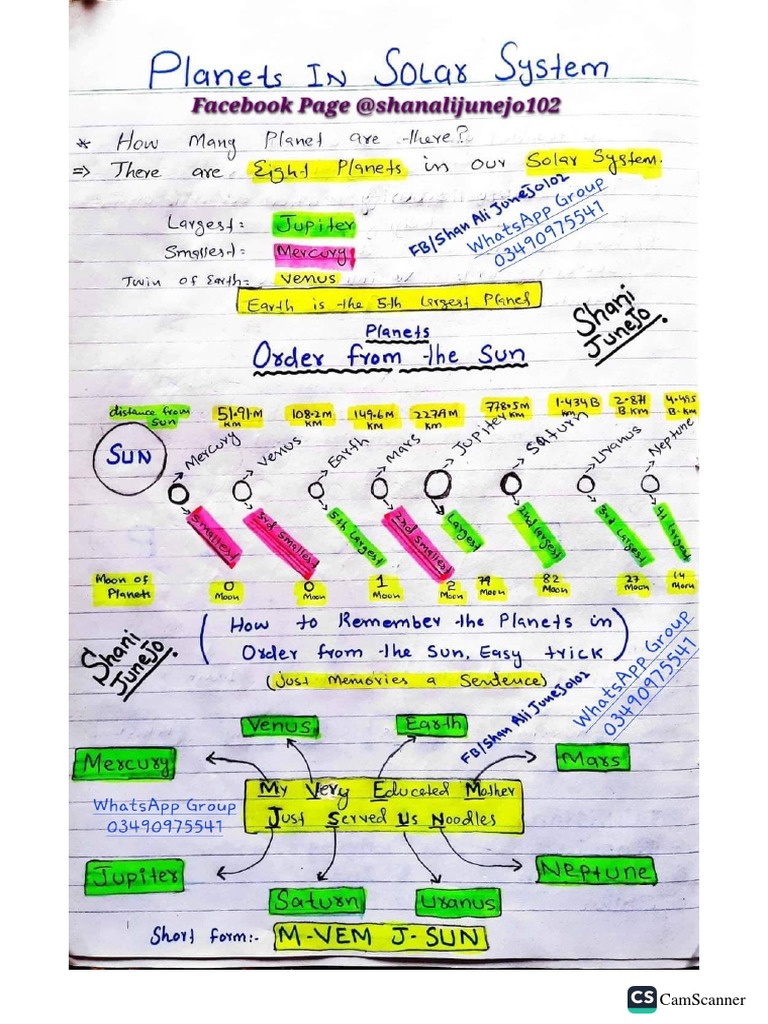 Planets In Solar System
Facebook Page @shanalijunejo102
* How Many Planet are there?
⇒ There are Eight Planets in our Solar System.
Largest= Jupiter
Smallest= Mercury
Twin of Earth= Venus
FB/Shan Ali Junejo102
WhatsApp Group
03490975541
Earth is the 5th largest Planet
Shani
Junejo
Planets
Order from the Sun
distance from Sun
51.91.M KM
108.2M KM
149.6M KM
227.9M KM
778.5M KM
1.434B KM
2.871 B.KM
4.495 B.KM
SUN
Mercury
Venus
Earth
Mars
Jupiter
Saturn
Uranus
Neptune
Smallest
3rd smallest
5th largest
2nd smallest
Largest
2nd largest
3rd largest
4th largest
Moon of Planets
0 Moon
0 Moon
1 Moon
2 Moon
79 Moon
82 Moon
27 Moon
14 Moon
(How to Remember the Planets in
Order from the Sun, Easy trick)
(Just Memories a Sentence)
Shani
Junejo
FB/Shan Ali Junejo102
WhatsApp Group
03490975541
Venus
Earth
Mercury
Mars
My Very Educated Mother
Just Served Us Noodles
WhatsApp Group
03490975541
Jupiter
Saturn
Uranus
Neptune
Short form:- M-VEM J-SUN
CS CamScanner